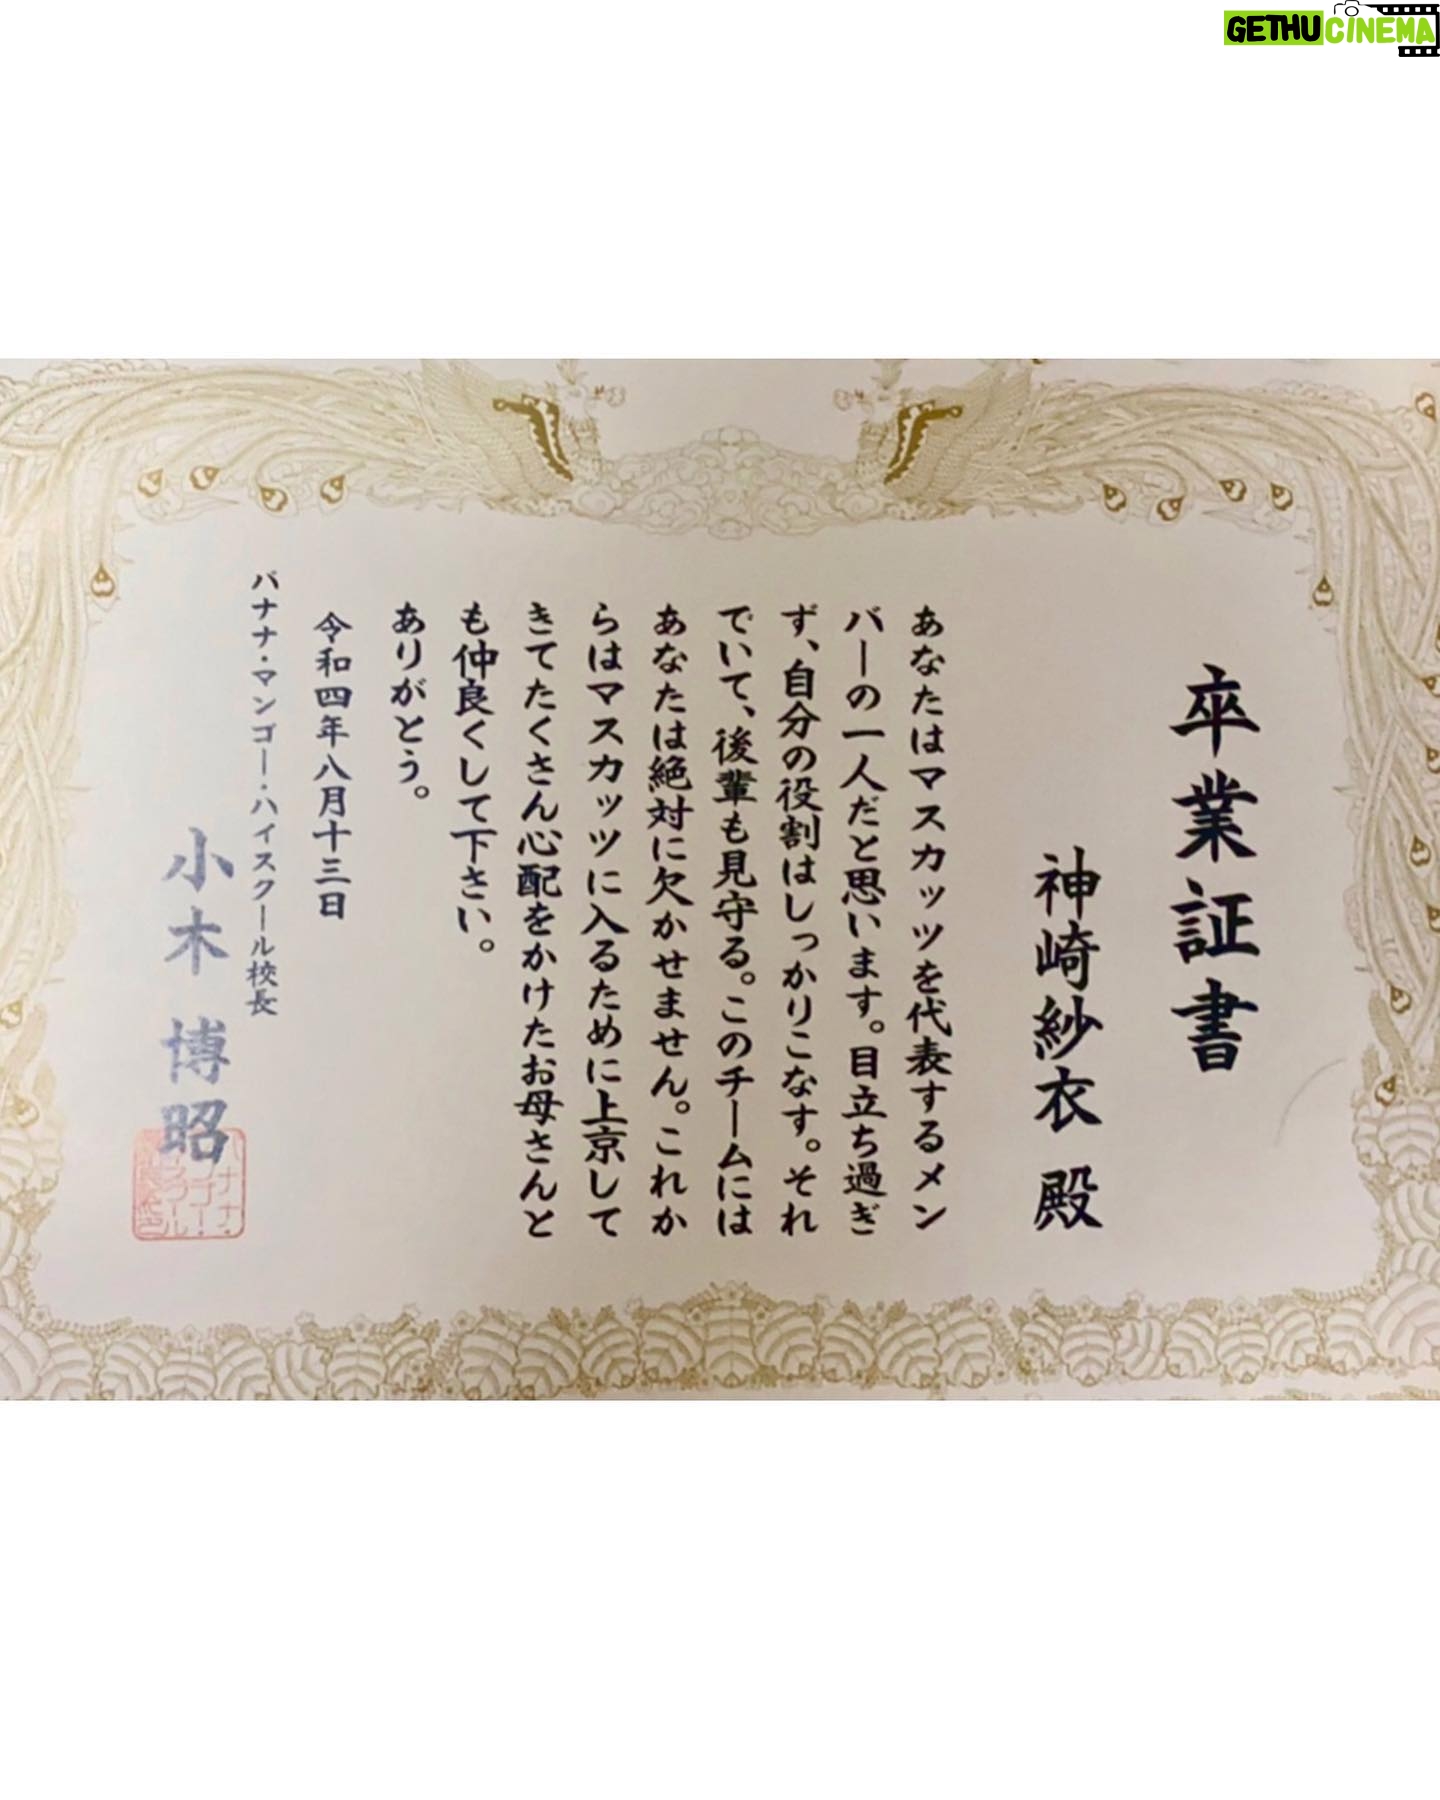 GETHUCINEMA
卒業証書
神崎紗衣 殿
あなたはマスカッツを代表するメン
バーの一人だと思います。目立ち過ぎ
ず、自分の役割はしっかりこなす。それ
でいて、後輩も見守る。このチームには
あなたは絶対に欠かせません。これか
らはマスカッツに入るために上京して
きてたくさん心配をかけたお母さんと
も仲良くして下さい。
ありがとう。
令和四年八月十三日
バナナ・マンゴー・ハイスクール校長
小木 博昭